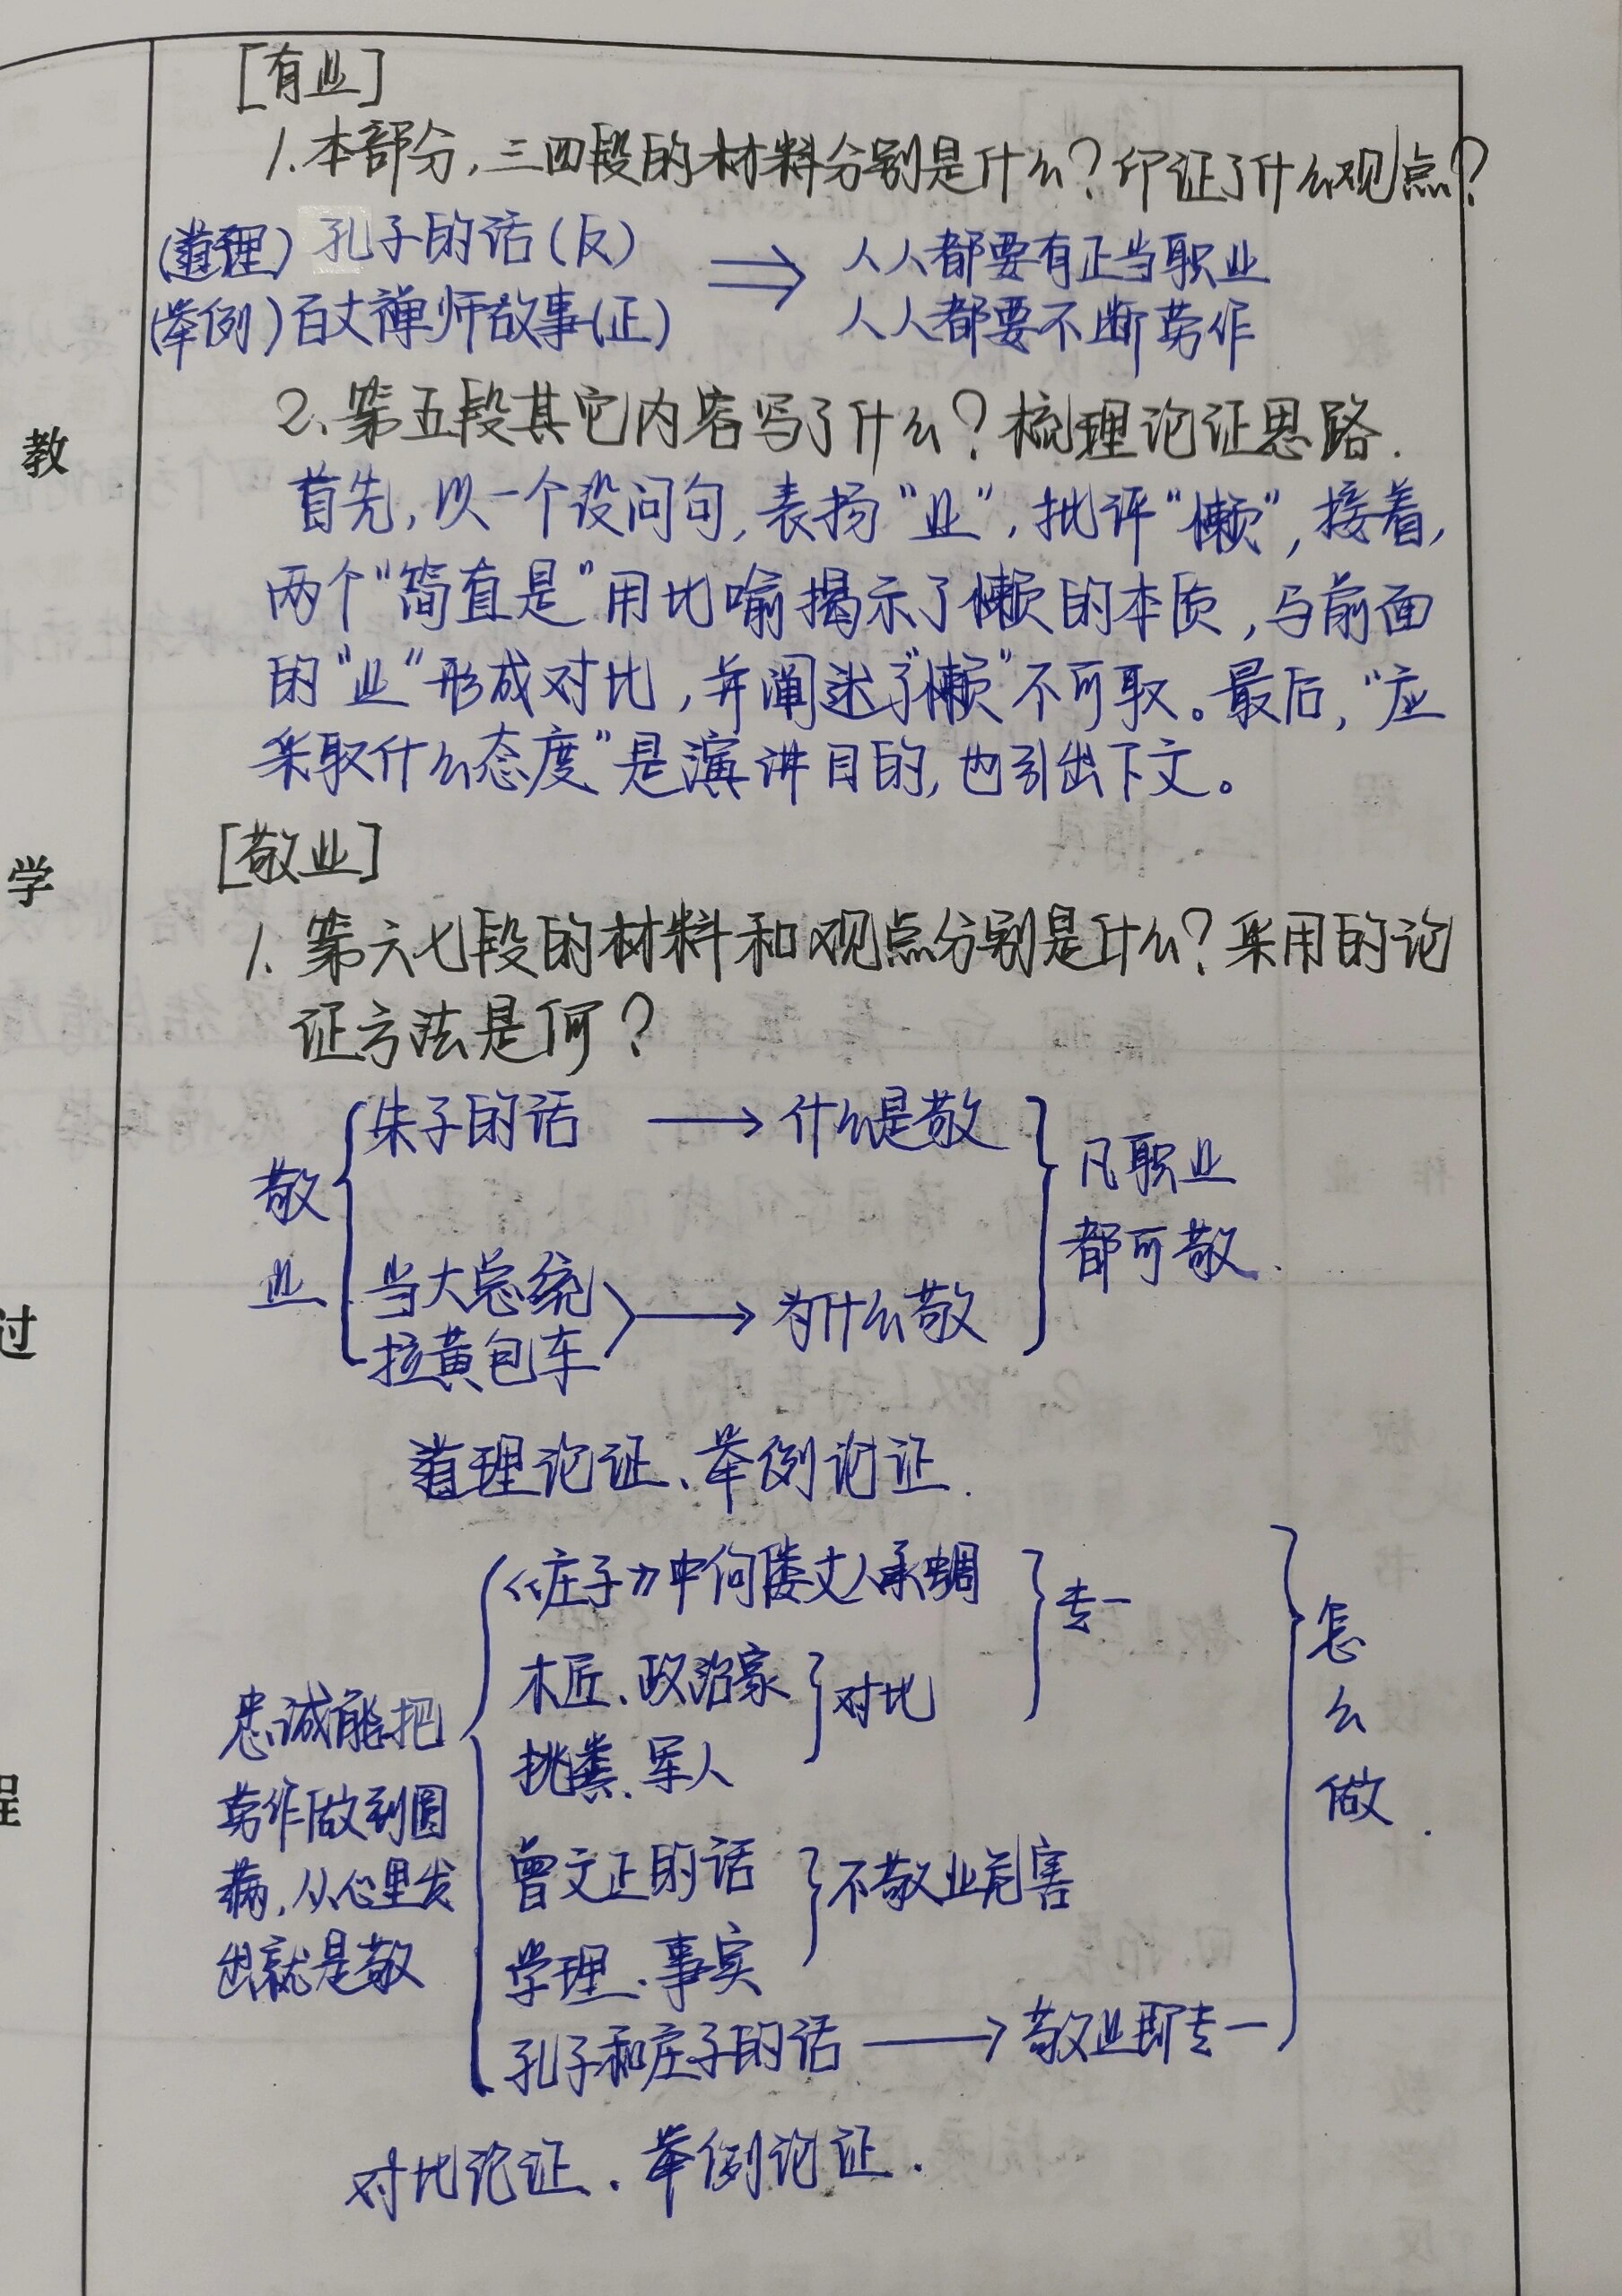 [有业]
1.本部分,三四段的材料分别是什么?印证了什么观点?
(道理)孔子的话(反) ⟹ 人人都要有正当职业
(举例)百丈禅师故事(正) 人人都要不断劳作
2、第五段其它内容写了什么?梳理论证思路.
首先,以一个设问句,表扬“业”,批评“懒”,接着,
两个“简直是”用比喻揭示了懒的本质,与前面
的“业”形成对比,并阐述了“懒”不可取。最后,“应
采取什么态度”是演讲目的,也引出下文。
[敬业]
1.第六七段的材料和观点分别是什么?采用的论
证方法是何?
敬业
朱子的话 → 什么是敬
当大总统
拉黄包车 → 为什么敬
凡职业
都可敬.
道理论证、举例论证.
忠诚能把
劳作做到圆
满,从心里发
出就是敬
《庄子》中佝偻丈人承蜩
木匠、政治家
挑粪、军人
对比
专一
曾文正的话
学理、事实
不敬业危害
孔子和庄子的话 → 敬业即专一
怎么做.
对比论证、举例论证.
教
学
过
程